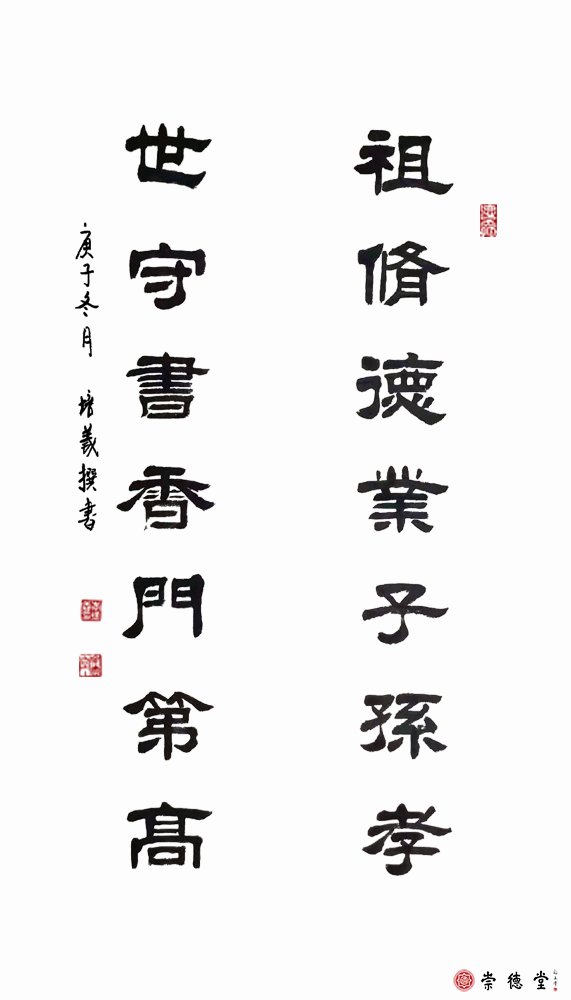 祖脩德業子孫孝
世守書香門第高
庚子冬月 培義撰書
崇德堂